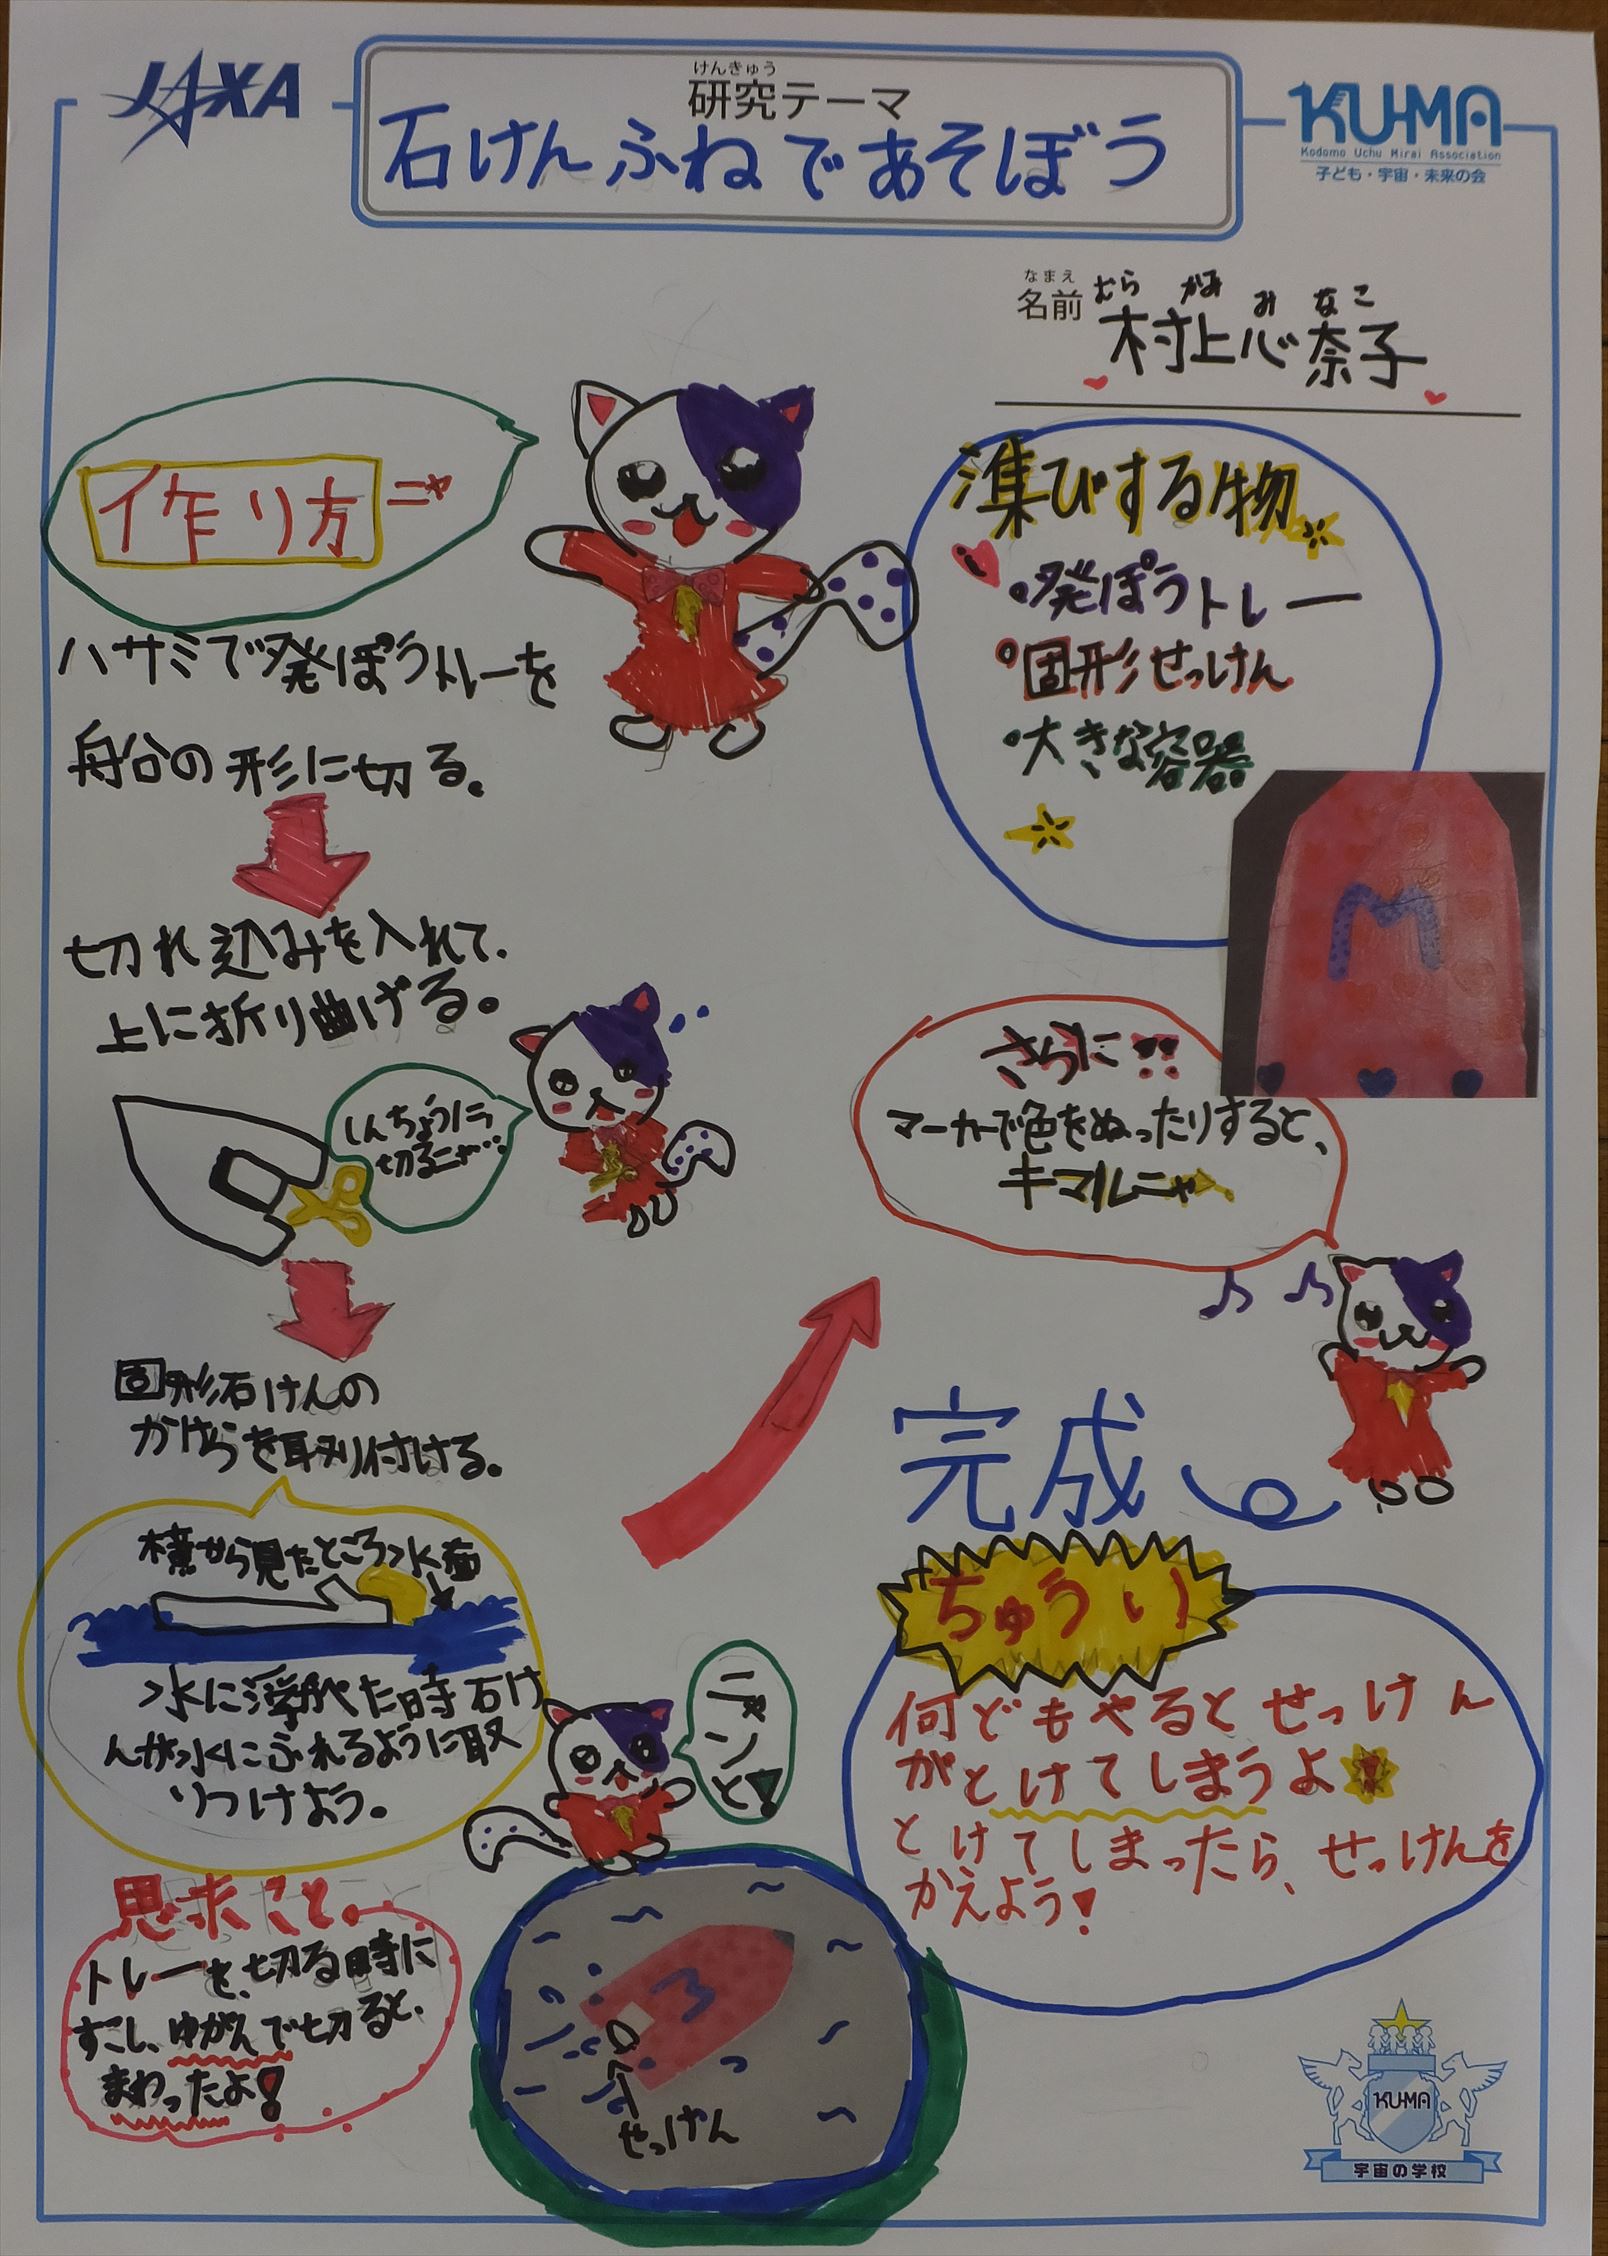 JAXA
けんきゅう
研究テーマ
石けんふねであそぼう
KU-MA
Kodomo Uchu Mirai Association
子ども・宇宙・未来の会
なまえ
名前
むら かみ み なこ
村上心奈子
作り方ニャ
ハサミで発ぽうトレーを
船の形に切る。
切れ込みを入れて、
上に折り曲げる。
しんちょうに
切るニャ…
固形石けんの
かけらを取り付ける。
横から見たところ 水面
水に浮かべた時石け
んが水にふれるように取
りつけよう。
ニャンと!
思ったこと。
トレーを切る時に
すこし、ゆがんで切ると、
まわったよ!
せっけん
準びする物
・発ぽうトレー
・固形せっけん
・大きな容器
M
さらに!!
マーカーで色をぬったりすると、
キマルニャ
完成
ちゅうい
何どもやるとせっけん
がとけてしまうよ!
とけてしまったら、せっけんを
かえよう!
KU-MA
宇宙の学校